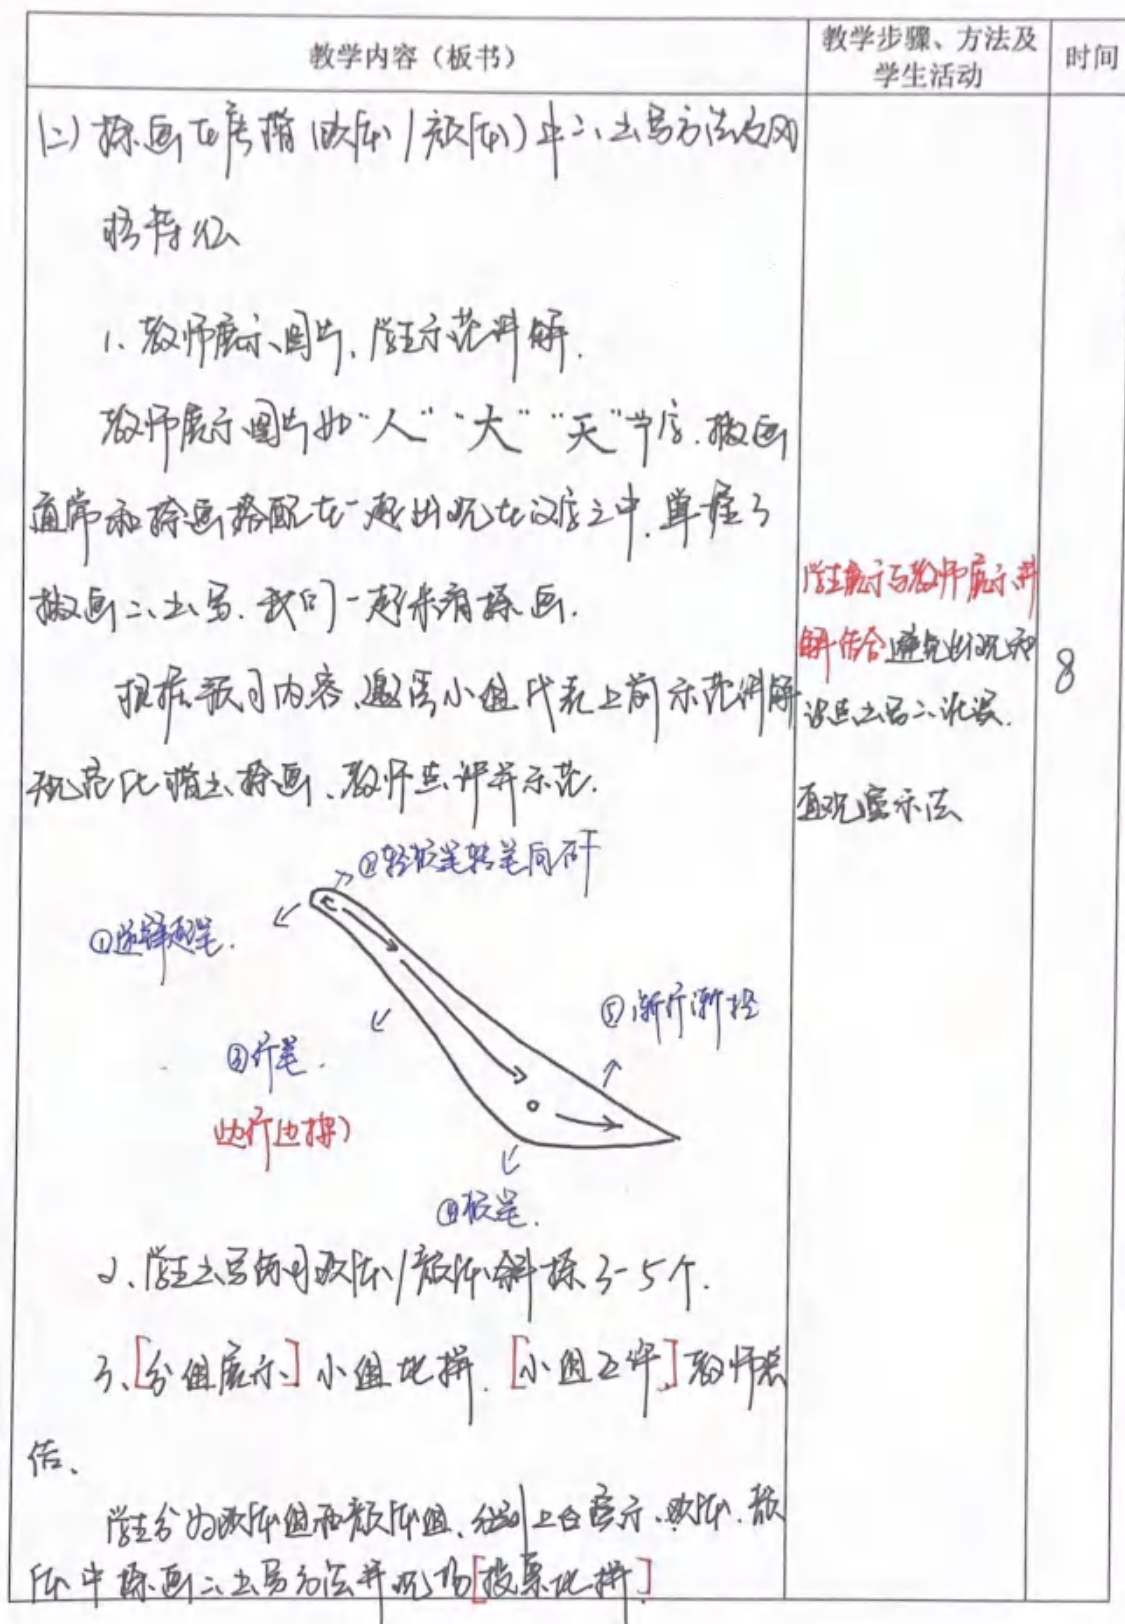 教学内容（板书）
教学步骤、方法及
学生活动
时间
(二) 捺画在唐楷（欧体/颜体）中之书写方法及风
格特征
1、教师展示图片、学生示范讲解.
教师展示图片如“人”“大”“天”等字.撇画
通常和捺画搭配在一起出现在汉字之中,掌握了
撇画之书写.我们一起来看捺画.
根据预习内容,邀请小组代表上前示范讲解
规范化楷书捺画、教师点评并示范.
①逆锋起笔.
②轻按笔转笔向右下
③行笔.
(边行边按)
④按笔.
⑤渐行渐轻
2、学生书写练习欧体/颜体斜捺3-5个.
3、[分组展示]小组比拼.[小组互评]教师总
结、
学生分为欧体组和颜体组、分别上台展示、欧体、颜
体中捺画之书写方法并现场[投票比拼]
学生展示与教师展示讲
解结合,避免出现知
识点书写之误.
直观演示法
8